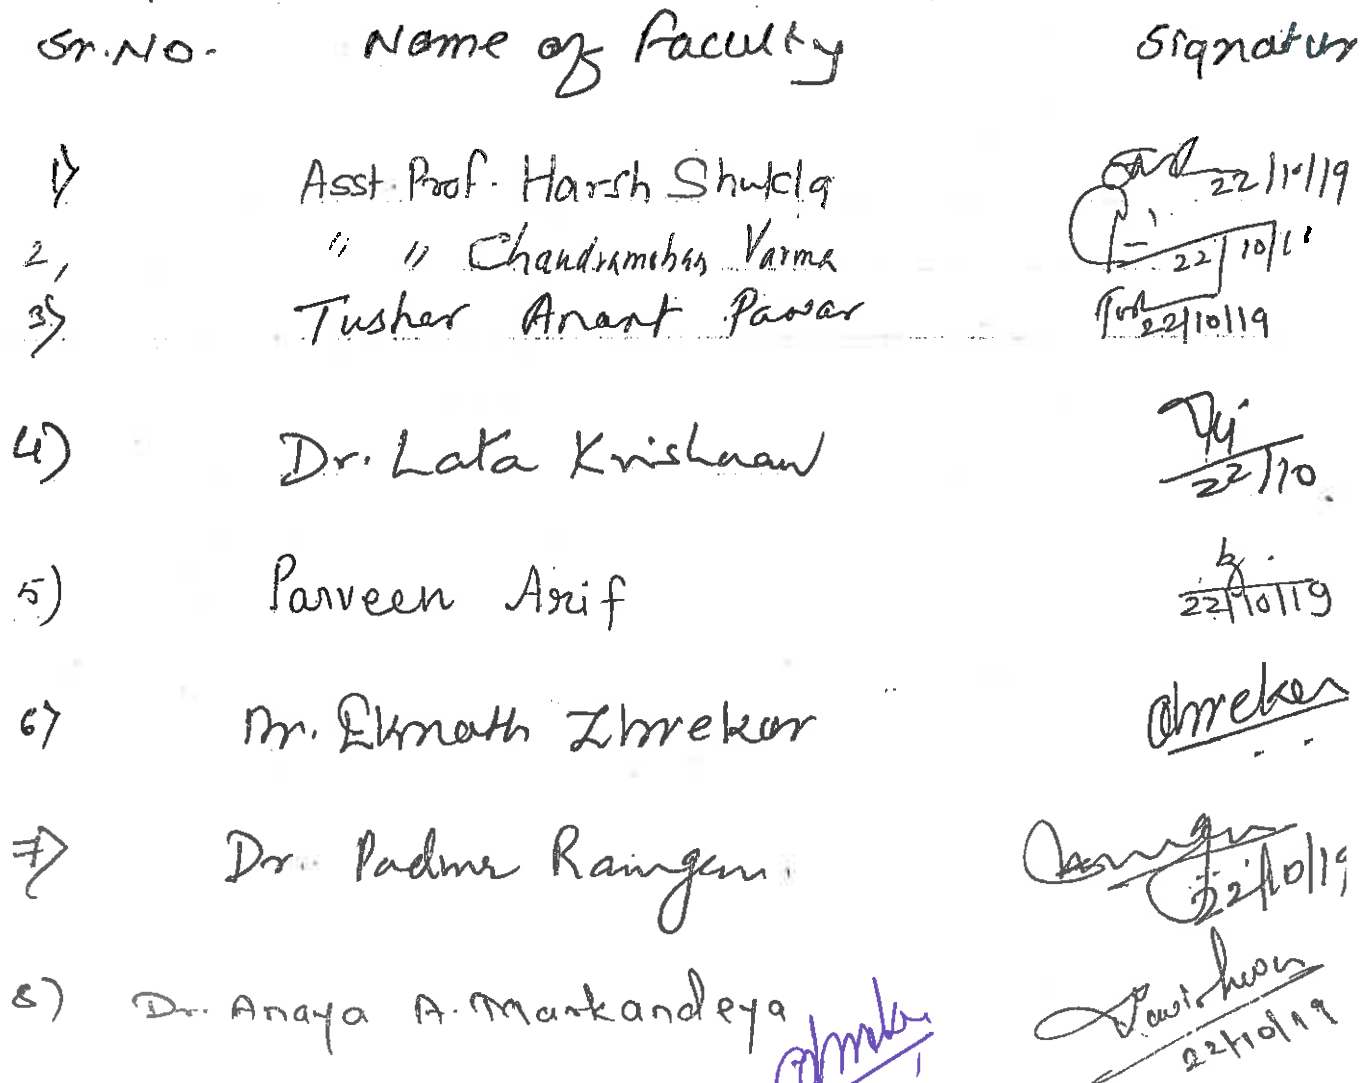 Sr.No. Name of faculty Signatur
1) Asst. Prof. Harsh Shukla 22/10/19
2, " " Chandramohan Varma 22/10/1
3) Tushar Anant Pawar 22/10/19
4) Dr. Lata Krishnan 22/10
5) Parveen Arif 22/10/19
6) Dr. Eknath Zhrekar
7) Dr. Padma Rangan 22/10/19
8) Dr. Anaya A. Markandeya 22/10/19